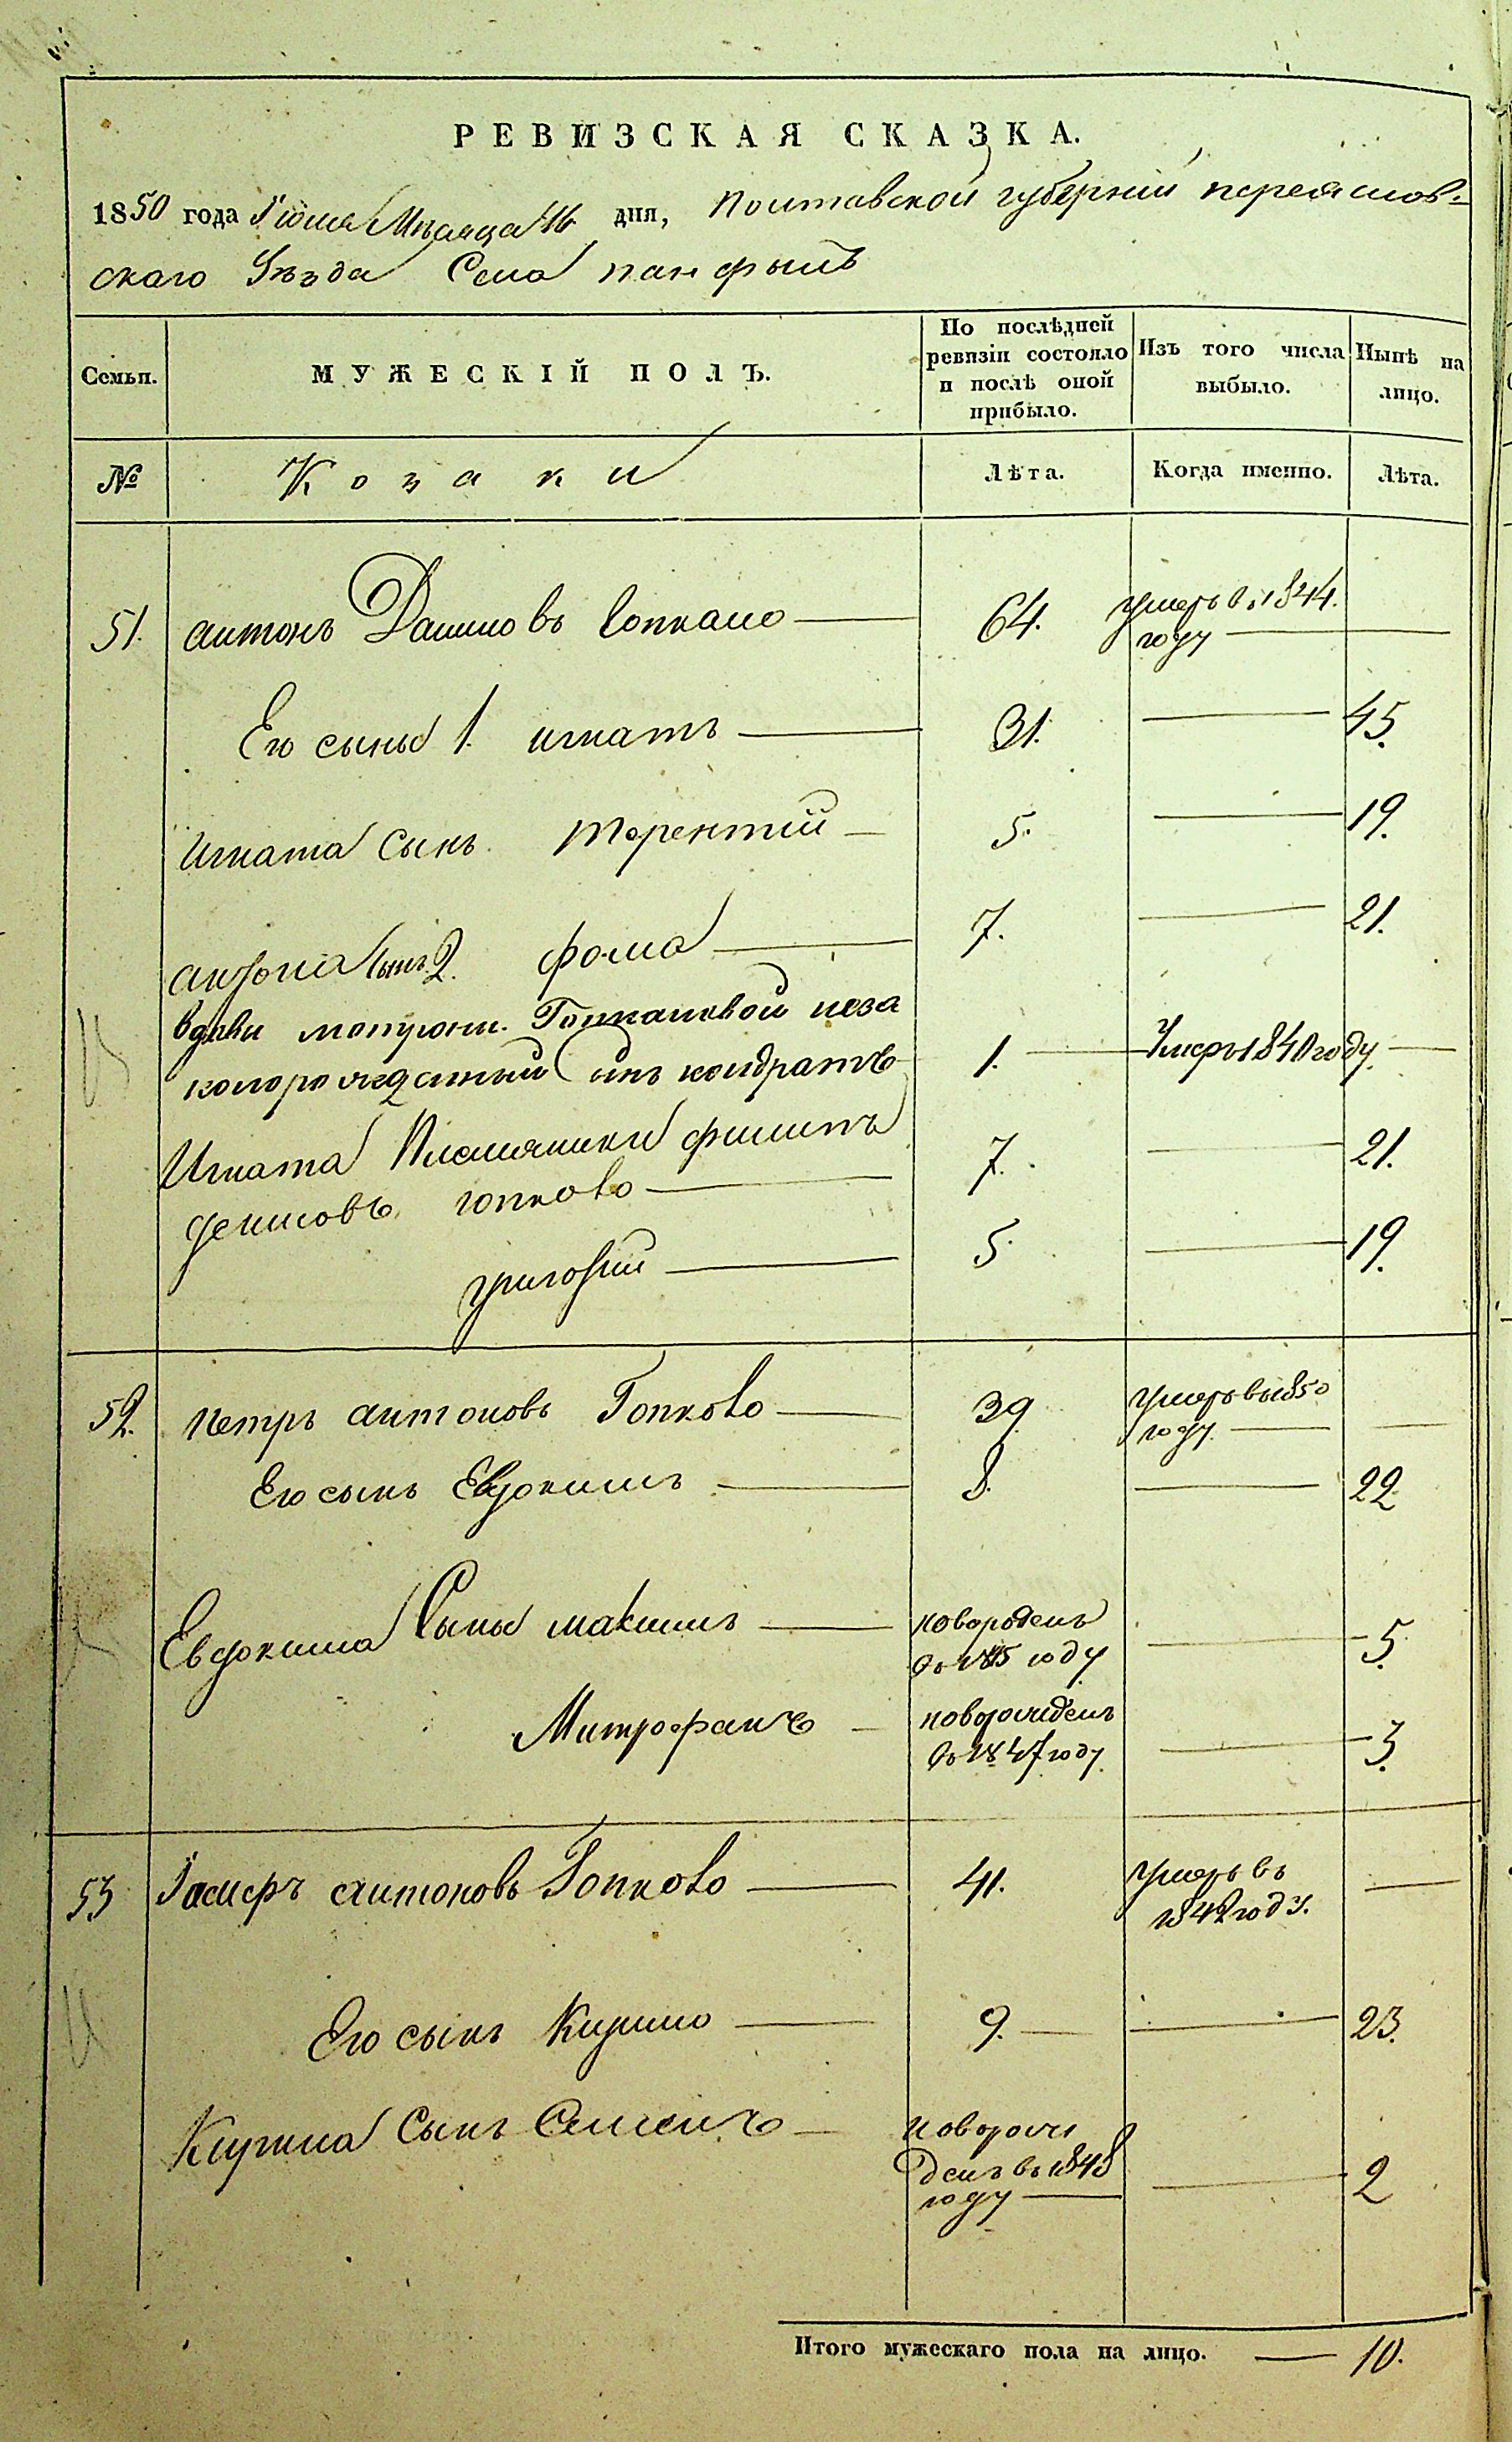 РЕВИЗСКАЯ СКАЗКА.
1850 года Іюня Мѣсяца 16 дня, Полтавской губерніи переяслов-
скаго Уѣзда Села панфилъ
Семьи. МУЖЕСКІЙ ПОЛЪ. По послѣдней ревизіи состояло и послѣ оной прибыло. Изъ того числа выбыло. Нынѣ на лицо.
№ Козаки Лѣта. Когда именно. Лѣта.
51. антонъ Данилов 64. умеръ въ 1844.
году
Его сыны 1. игнатъ 31. 45.
Игната Сынъ терентій 5. 19.
антона Сынъ 2. фома 7. 21.
вдовы мотроны неза
конорожденный Сынъ кондратъ 1. Умеръ 1840 году.
Игната Племяники филипъ 7. 21.
денисовъ гопкоlо
григорій 5. 19.
52. петръ антоновъ Гопкоlо 39 умеръ вы 1850
году.
Его сынъ Евдокимъ 8. 22
Евдокима Сыны максимъ новороденъ 5.
въ 1845 году
Митрофанъ новорожденъ 3.
въ 1847 году.
53 антоновъ Гопкоlо 41. умеръ въ
1842 году.
Его сынъ Кирило 9. 23.
Кирила Сынъ Семенъ новорож
денъ въ 1848 2
году
Итого мужескаго пола на лицо. 10.